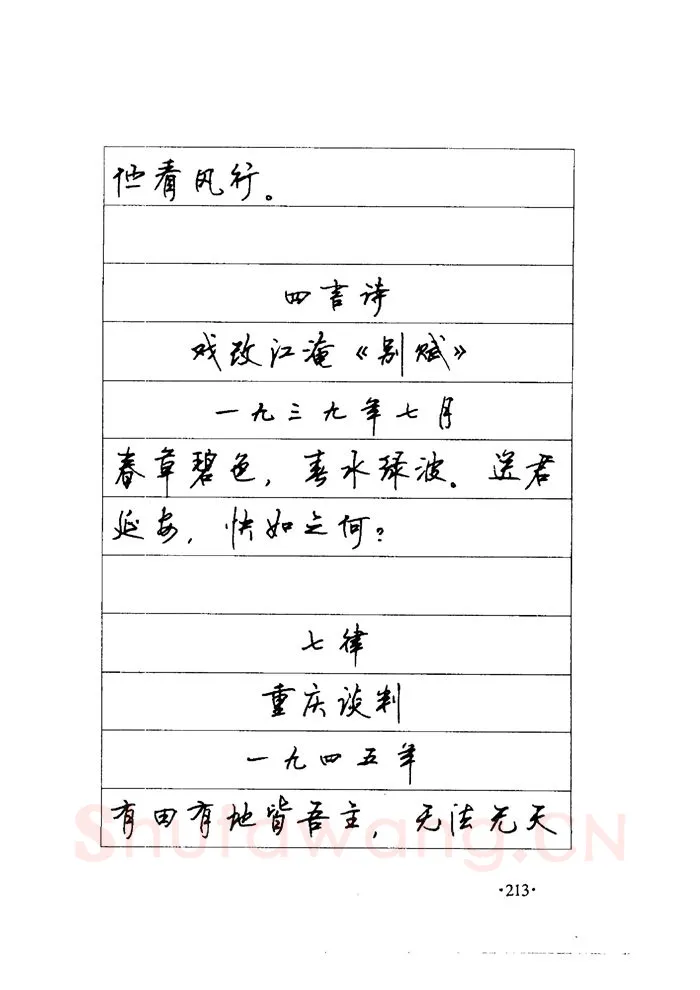 他看风行。
四言诗
戏改江淹《别赋》
一九三九年七月
春草碧色，春水绿波。送君
延安，快如之何？
七律
重庆谈判
一九四五年
有田有地皆吾主，无法无天
Shufawang.CN
·213·